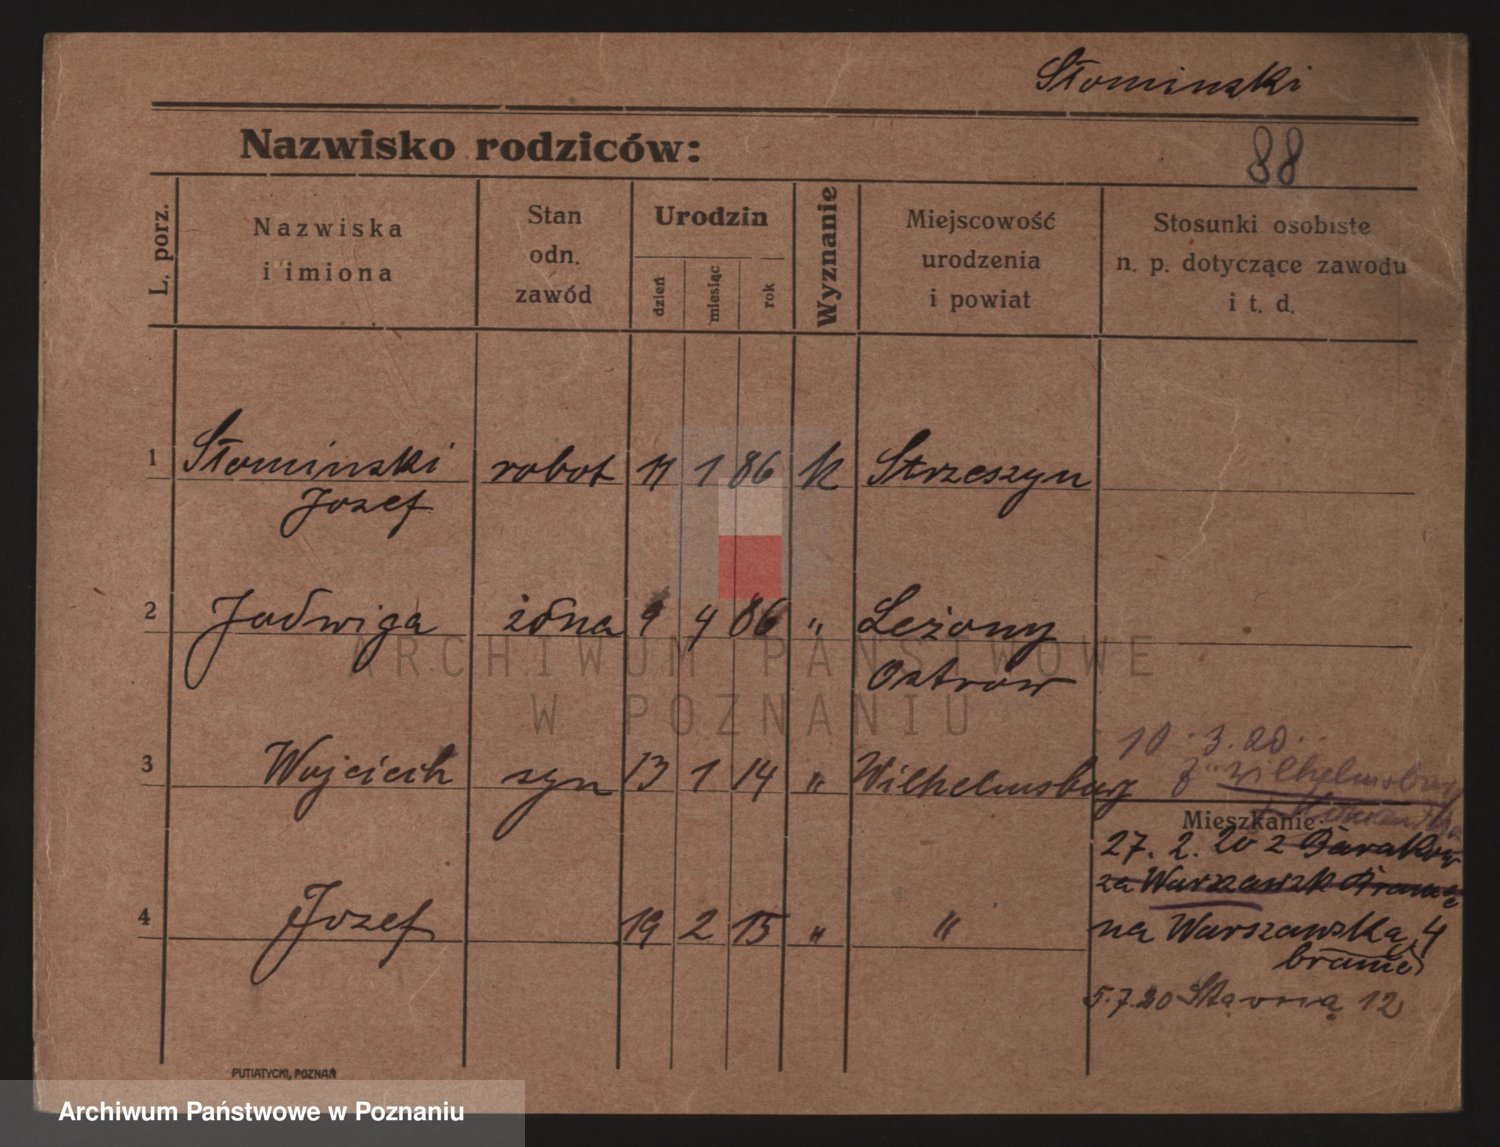 Słominski
Nazwisko rodziców:
88
L. porz.
Nazwiska
i imiona
Stan
odn.
zawód
Urodzin
dzień
miesiąc
rok
Wyznanie
Miejscowość
urodzenia
i powiat
Stosunki osobiste
n. p. dotyczące zawodu
i t. d.
1 Słomiński robot 11 1 86 k Strzeszyn
Jozef
2 Jadwiga żona 9 4 86 " Leziony
Ostrow
10.3.20.
3 Wojciech syn 13 1 14 " Wilhelmsburg
z Wilhelmsburg
Mieszkanie
27. 2. 20 z Barakow
za Warszawsk Bramą
4 Jozef 19 2 15 " "
na Warszawską 4
bramie
5.7.20 Stawną 12
PUTIATYCKI, POZNAŃ
ARCHIWUM PAŃSTWOWE
W POZNANIU
Archiwum Państwowe w Poznaniu